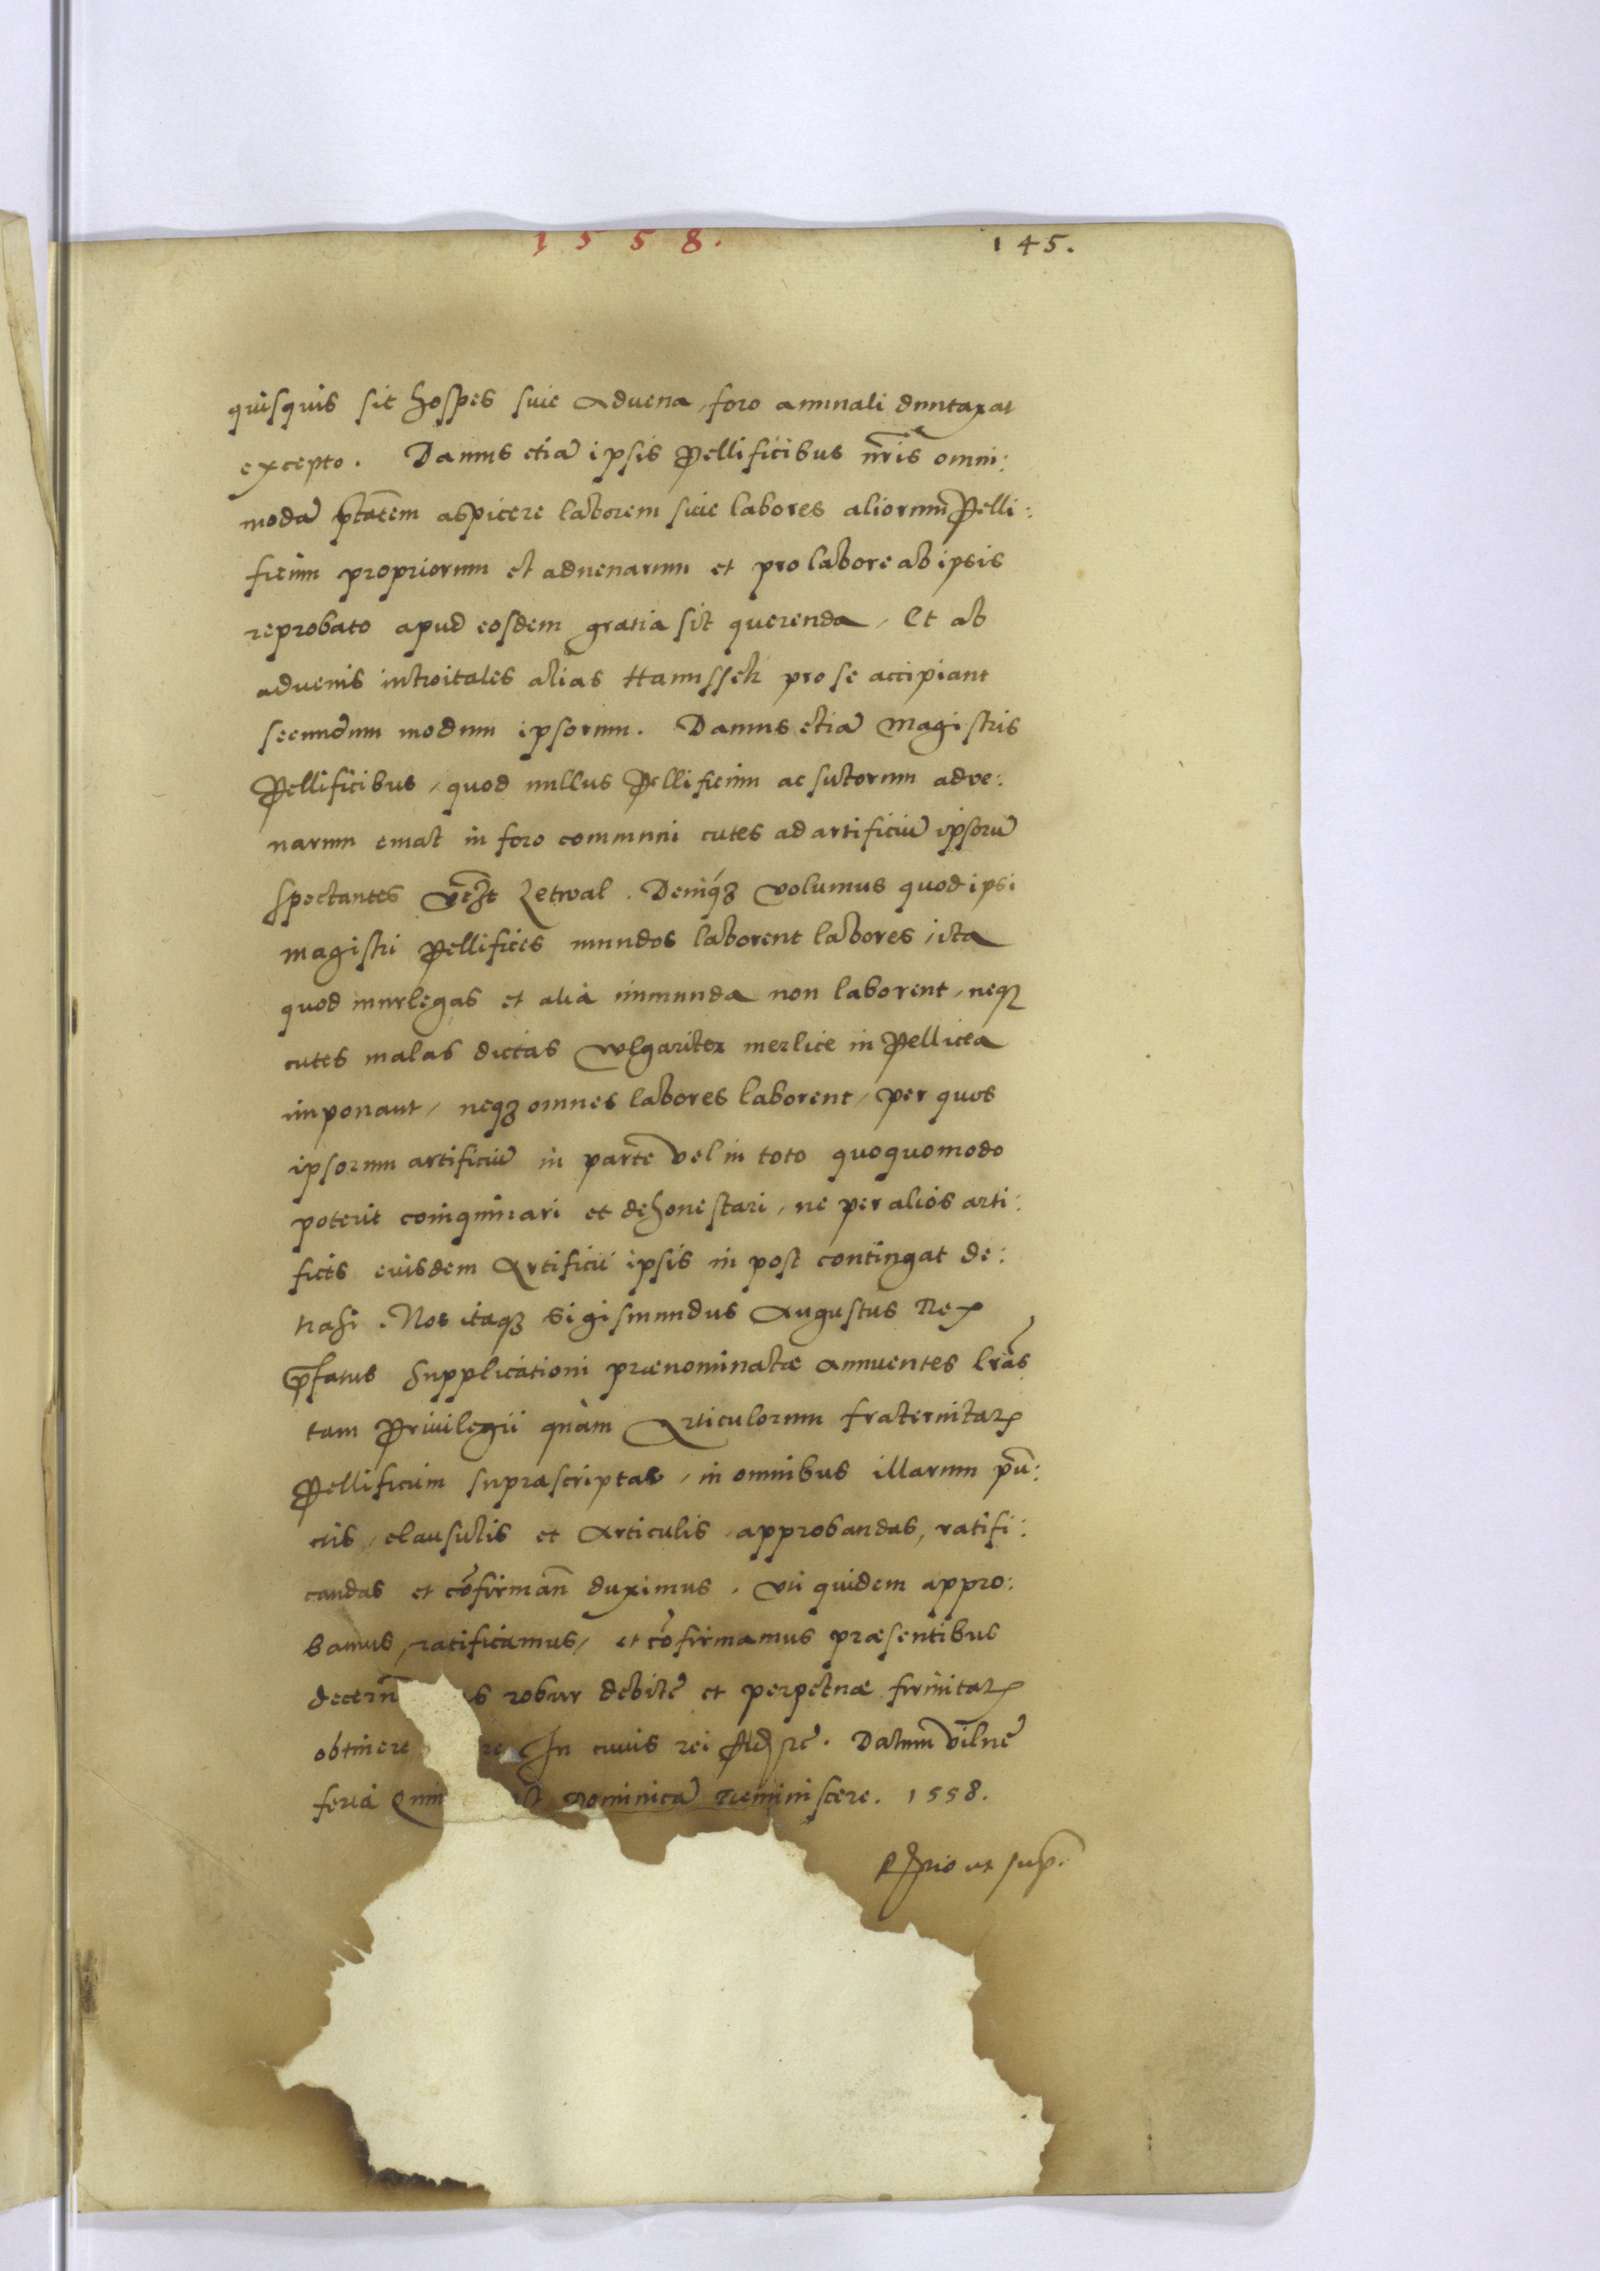 1558. 145.
quisquis sit hospes siue aduena, foro annuali duntaxat
excepto. Damus etiā ipsis Pellificibus nr̄is omni:
modā ptātem aspicere laborem siue labores aliorum Pelli:
ficum propriorum et aduenarum et pro labore ab ipsis
reprobato apud eosdem gratia sit querenda, Et ab
aduenis introitales alias pro se accipiant
secundum modum ipsorum. Damus etiā Magistris
Pellificibus, quod nullus Pellificum ac sutorum adve:
narum emat in foro communi cutes ad artificiū ipsorū
spectantes Zetwal. Deniqz volumus quod ipsi
magistri Pellifices mundos laborent labores, ita
quod murlegas et alia immunda non laborent, neqz
cutes malas dictas vulgariter merlice in Pellicea
imponant, neqz omnes labores laborent, per quos
ipsorum artificiū in parte vel in toto quoquomodo
poterit coinquinari et dehonestari, ne per alios arti:
fices eiusdem Artificii ipsis in post contingat de:
trahi. Nos itaqz Sigismundus Augustus Rex
p̄fatus supplicationi prænominatæ annuentes lr̄as
tam Privilegii quàm Articulorum fraternitatꝭ
Pellificum suprascriptas, in omnibus illarum pū:
ctis, clausulis et Articulis approbandas, ratifi:
candas et cōfirman̄ duximus. Uti quidem appro:
bamus, ratificamus, et cōfirmamus præsentibus
decern̄ as robur debitē et perpetuæ firmitatꝭ
obtinere re In cuius rei Datum Vilnē
feria Quin Dominicā Reminiscere. 1558.
ut sup.